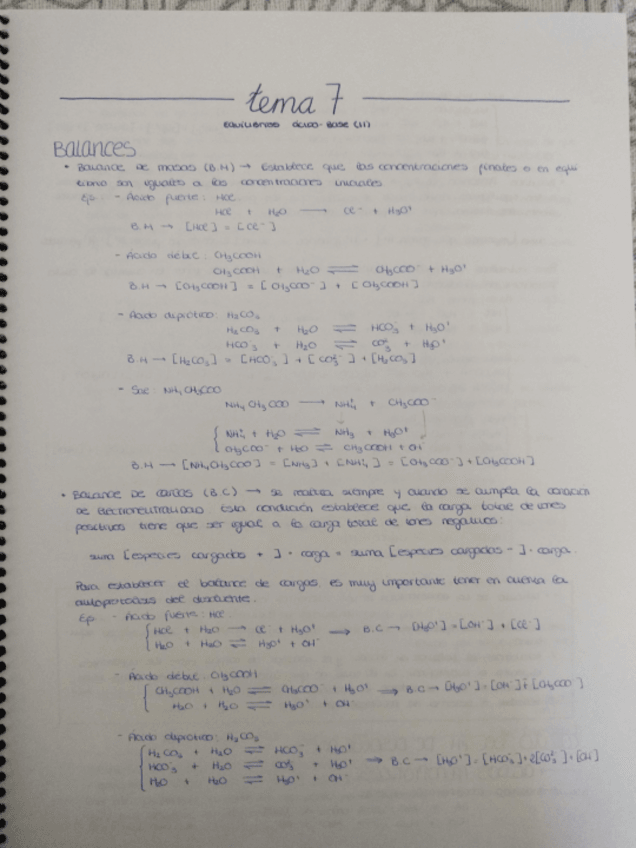 tema 7
EQUILIBRIOS ÁCIDO-BASE (II)
BALANCES
• Balance de masas (B.M) → Establece que las concentraciones finales o en equi
librio son iguales a las concentraciones iniciales
Ej: - Ácido fuerte: HCl
HCl + H₂O → Cl⁻ + H₃O⁺
B.M → [HCl] = [Cl⁻]
- Ácido débil: CH₃COOH
CH₃COOH + H₂O ⇌ CH₃COO⁻ + H₃O⁺
B.M → [CH₃COOH] = [CH₃COO⁻] + [CH₃COOH]
- Ácido diprótico: H₂CO₃
H₂CO₃ + H₂O ⇌ HCO₃⁻ + H₃O⁺
HCO₃⁻ + H₂O ⇌ CO₃²⁻ + H₃O⁺
B.M → [H₂CO₃] = [HCO₃⁻] + [CO₃²⁻] + [H₂CO₃]
- Sal: NH₄CH₃COO
NH₄CH₃COO → NH₄⁺ + CH₃COO⁻
NH₄⁺ + H₂O ⇌ NH₃ + H₃O⁺
CH₃COO⁻ + H₂O ⇌ CH₃COOH + OH⁻
B.M → [NH₄CH₃COO] = [NH₃] + [NH₄⁺] = [CH₃COO⁻] + [CH₃COOH]
• Balance de cargas (B.C) → Se realiza siempre y cuando se cumpla la condición
de electroneutralidad. Esta condición establece que la carga total de iones
positivos tiene que ser igual a la carga total de iones negativos:
suma [especies cargadas +] · carga = suma [especies cargadas -] · carga.
Para establecer el balance de cargas, es muy importante tener en cuenta la
autoprotólisis del disolvente.
Ej: - Ácido fuerte: HCl
HCl + H₂O → Cl⁻ + H₃O⁺ → B.C → [H₃O⁺] = [OH⁻] + [Cl⁻]
H₂O + H₂O ⇌ H₃O⁺ + OH⁻
- Ácido débil: CH₃COOH
CH₃COOH + H₂O ⇌ CH₃COO⁻ + H₃O⁺ → B.C → [H₃O⁺] = [OH⁻] + [CH₃COO⁻]
H₂O + H₂O ⇌ H₃O⁺ + OH⁻
- Ácido diprótico: H₂CO₃
H₂CO₃ + H₂O ⇌ HCO₃⁻ + H₃O⁺
HCO₃⁻ + H₂O ⇌ CO₃²⁻ + H₃O⁺ → B.C → [H₃O⁺] = [HCO₃⁻] + 2[CO₃²⁻] + [OH⁻]
H₂O + H₂O ⇌ H₃O⁺ + OH⁻